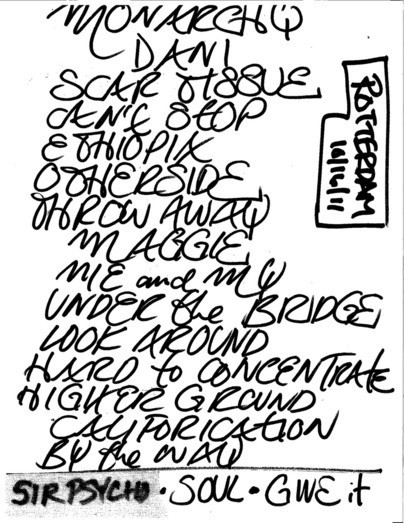 MONARCHY
DANI
SCAR TISSUE
CAN'T STOP
ETHIOPIA
OTHERSIDE
THROW AWAY
MAGGIE
ME and MY
UNDER the BRIDGE
LOOK AROUND
HARD to CONCENTRATE
HIGHER GROUND
CALIFORICATION
BY the WAY
SIR PSYCHO • SOUL • GIVE it
ROTTERDAM
10/16/11